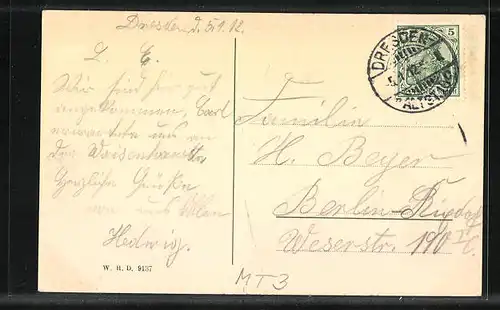 Dresden d. 5.1.12.
L. E.
Wir sind hier gut
angekommen, Carl
erwartete uns an
der
Herzliche Grüße
von uns Allen
Hedwig.
W. R. D. 9137
DRESDEN
ALTSTADT
5
Familie
H. Beyer
Berlin-Rixdorf
Weserstr. 190 II
MT3